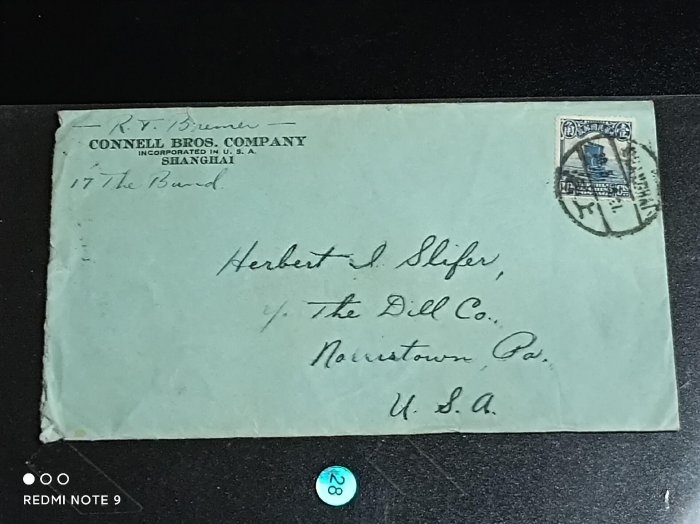 — R. F. Bremer —
CONNELL BROS. COMPANY
INCORPORATED IN U. S. A.
SHANGHAI
17 The Bund.
Herbert I Slifer,
c/o The Dill Co.,
Norristown, Pa.
U. S. A.
28
REDMI NOTE 9